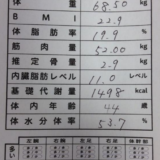 体重 68.50 kg
BMI 22.9
体脂肪率 19.9 %
筋肉量 52.00 kg
推定骨量 2.9 kg
内臓脂肪レベル 11.0 レベル
基礎代謝量 1498 kcal
体内年齢 44 歳
体水分率 53.7 %
左腕 右腕 左脚 右脚 体幹部
多い